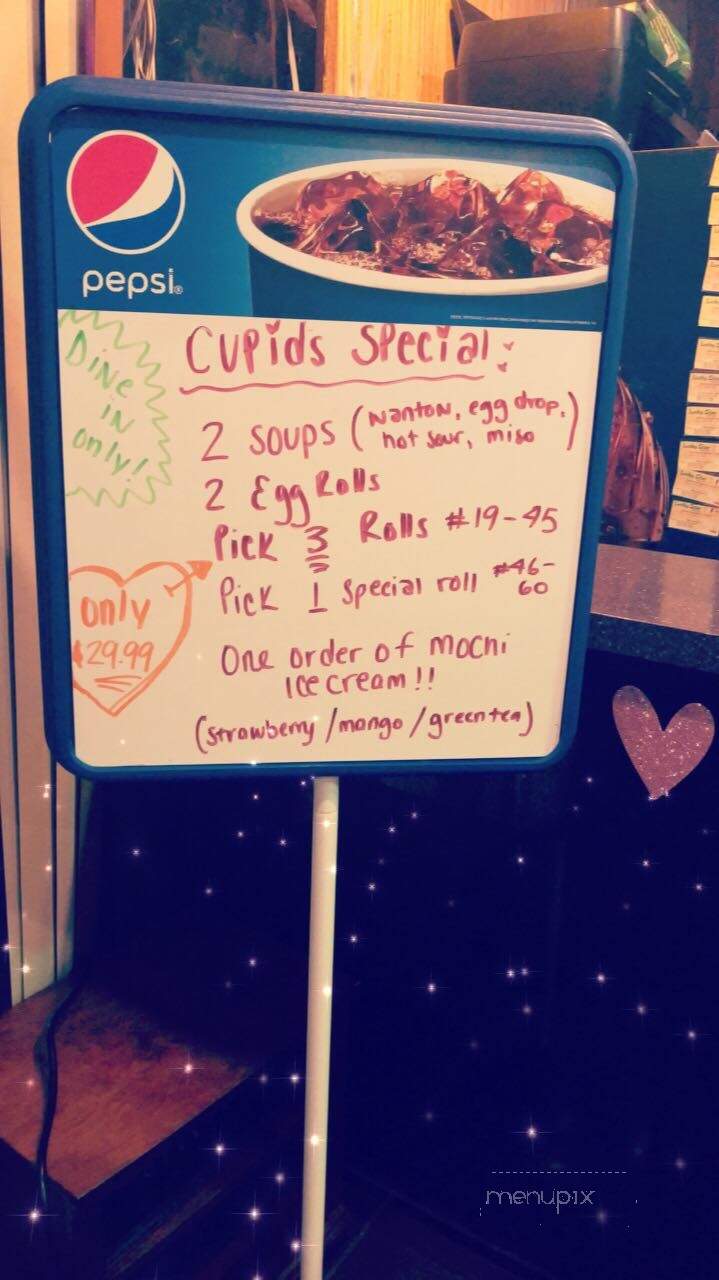 pepsi®
Cupids Special:
Dine
in
only!
2 soups (wanton, egg drop,
hot sour, miso)
2 Egg Rolls
Pick 3 Rolls #19-45
Pick 1 special roll #46-
60
only
$29.99
One order of mochi
ice cream!!
(strawberry/mango/green tea)
menupix